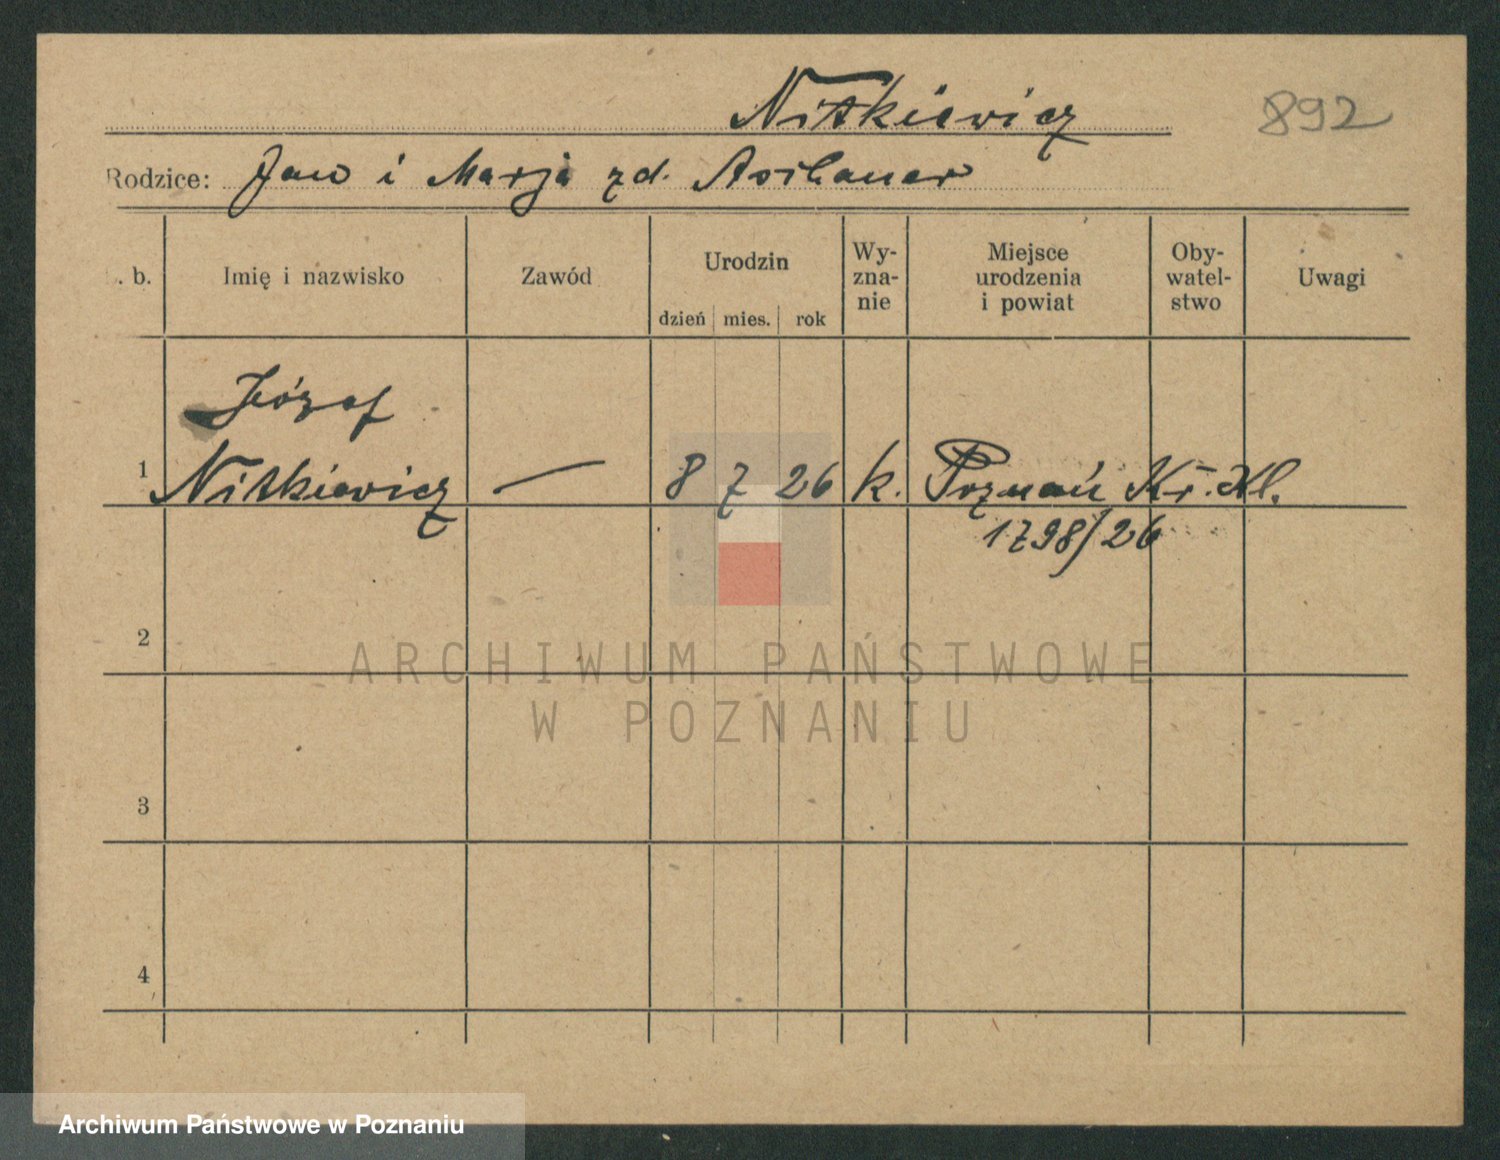 Nitkiewicz
892
Rodzice: Jan i Marja zd.
. b. Imię i nazwisko Zawód Urodzin Wy-zna-nie Miejsce urodzenia i powiat Oby-watel-stwo Uwagi
dzień mies. rok
Józef
1 Nitkiewicz — 8 7 26 k. Poznań
1798/26
2
ARCHIWUM PAŃSTWOWE
W POZNANIU
3
4
Archiwum Państwowe w Poznaniu